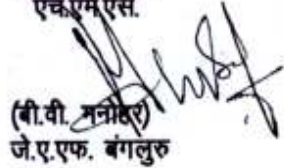 एच.एम.एस.
(बी.वी. मनोहर)
जे.ए.एफ. बंगलुरु